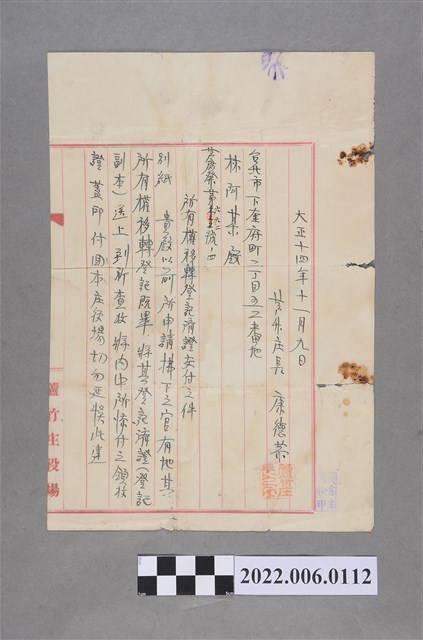 大正十四年十一月九日
蘆竹庄長 康德恭
臺北市下奎府町二丁目五二番地
林阿某殿
蘆參發第六六二號ノ四
所有權移轉登記濟證交付之件
別紙 貴殿以前所申請拂下之官有地其
所有權移轉登記既畢將其登記濟證(登記
副本)送上到所查收將內中所添付之領收
證蓋印付回本庄役場切勿延誤此達
蘆竹庄役場
2022.006.0112